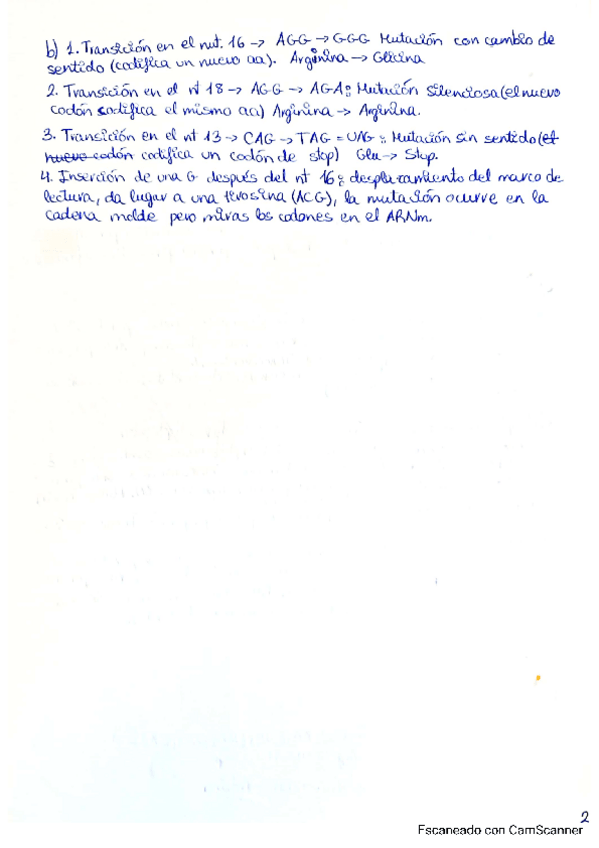 b) 1. Transición en el nut. 16 -> AGG -> GGG Mutación con cambio de
sentido (codifica un nuevo aa). Arginina -> Glicina
2. Transición en el nt 18 -> AGG -> AGA: Mutación silenciosa (el nuevo
codón codifica el mismo aa) Arginina -> Arginina.
3. Transición en el nt 13 -> CAG -> TAG = UAG: Mutación sin sentido (el
nuevo codón codifica un codón de stop) Glu -> Stop.
4. Inserción de una G después del nt 16: desplazamiento del marco de
lectura, da lugar a una tirosina (ACG), la mutación ocurre en la
cadena molde pero miras los codones en el ARNm.
2
Escaneado con CamScanner